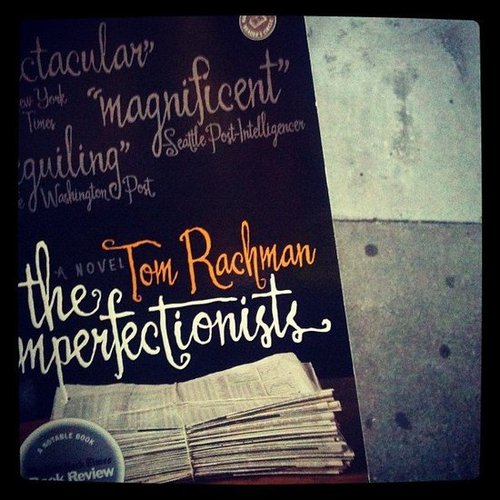 ctacular"
ew York
Times
"magnificent"
Seattle Post-Intelligencer
eguiling"
e Washington Post
A NOVEL
Tom Rachman
the
mperfectionists
A NOTABLE BOOK
ook Review